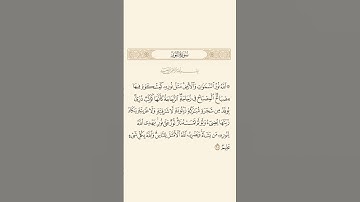 سُورَةُ النُّورِ
۞ ٱللَّهُ نُورُ ٱلسَّمَٰوَٰتِ وَٱلْأَرْضِ مَثَلُ نُورِهِۦ كَمِشْكَوٰةٍ فِيهَا
مِصْبَاحٌ ٱلْمِصْبَاحُ فِى زُجَاجَةٍ ٱلزُّجَاجَةُ كَأَنَّهَا كَوْكَبٌ دُرِّىٌّ
يُوقَدُ مِن شَجَرَةٍ مُّبَٰرَكَةٍ زَيْتُونَةٍ لَّا شَرْقِيَّةٍ وَلَا غَرْبِيَّةٍ يَكَادُ
زَيْتُهَا يُضِىٓءُ وَلَوْ لَمْ تَمْسَسْهُ نَارٌ نُّورٌ عَلَىٰ نُورٍ يَهْدِى ٱللَّهُ
لِنُورِهِۦ مَن يَشَآءُ وَيَضْرِبُ ٱللَّهُ ٱلْأَمْثَٰلَ لِلنَّاسِ وَٱللَّهُ بِكُلِّ شَىْءٍ
عَلِيمٌ